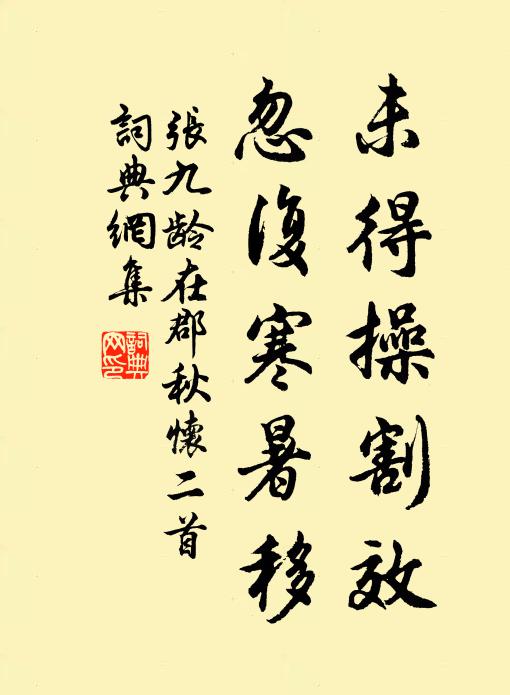 未得操割效
忽復寒暑移
張九齡在郡秋懷二首
詞典網集
詞典網印